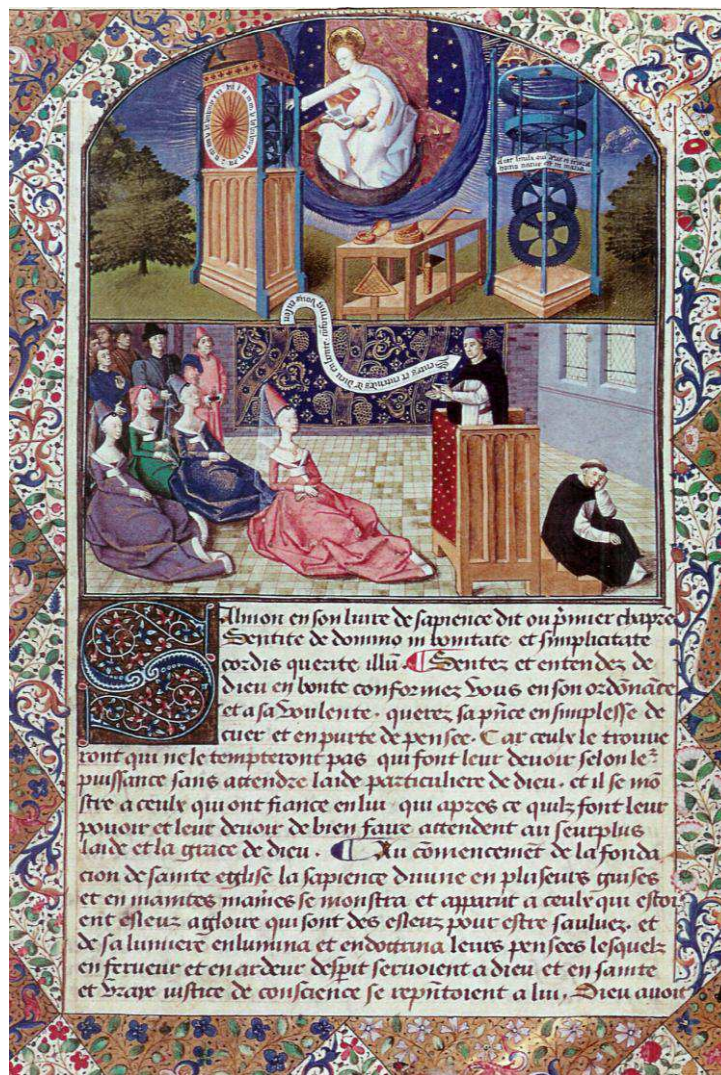 Sentez et entendez de dieu en bonte. conformez vous en son
Salmon en son livre de sapience dit ou p̄mier chap̄re
Sentite de domino in bonitate et simplicitate
cordis querite illū. Sentez et entendez de
dieu en bonte conformez vous en son ordōnāce
et a sa voulente. querez sa p̄nce en simplesse de
cuer et en purte de pensee. Car ceulx le trouve
ront qui ne le tempteront pas qui font leur devoir selon le
puissance sans attendre laide particuliere de dieu. et il se mō
stre a ceulx qui ont fiance en lui qui apres ce quilz font leur
pouoir et leur devoir de bien faire attendent au seurplus
laide et la grace de dieu. Au cōmencemēt de la fonda
cion de sainte eglise la sapience divine en pluseurs guises
et en maintes manieres se monstra et apparut a ceulx qui estoi
ent esleuz a gloire qui sont des esleuz pour estre sauluez. et
de sa lumiere enlumina et endoctrina leurs pensees lesquelz
en ferveur et en ardeur desp̄it servoient a dieu et en sainte
et vraye iustice de conscience se rep̄ntoient a lui, Dieu avoit